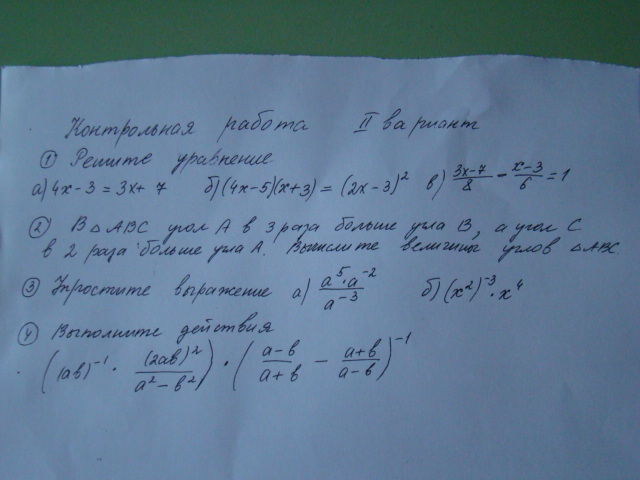 Контрольная работа II вариант
① Решите уравнение
а) 4x-3 = 3x+7 б) (4x-5)(x+3) = (2x-3)² в) (3x-7)/8 - (x-3)/6 = 1
② В △ABC угол A в 3 раза больше угла B, а угол C
в 2 раза больше угла A. Вычислите величины углов △ABC
③ Упростите выражение а) (a⁵·a⁻²)/a⁻³ б) (x²)⁻³·x⁴
④ Выполните действия
((ab)⁻¹ · (2ab)²/(a²-b²)) · ((a-b)/(a+b) - (a+b)/(a-b))⁻¹